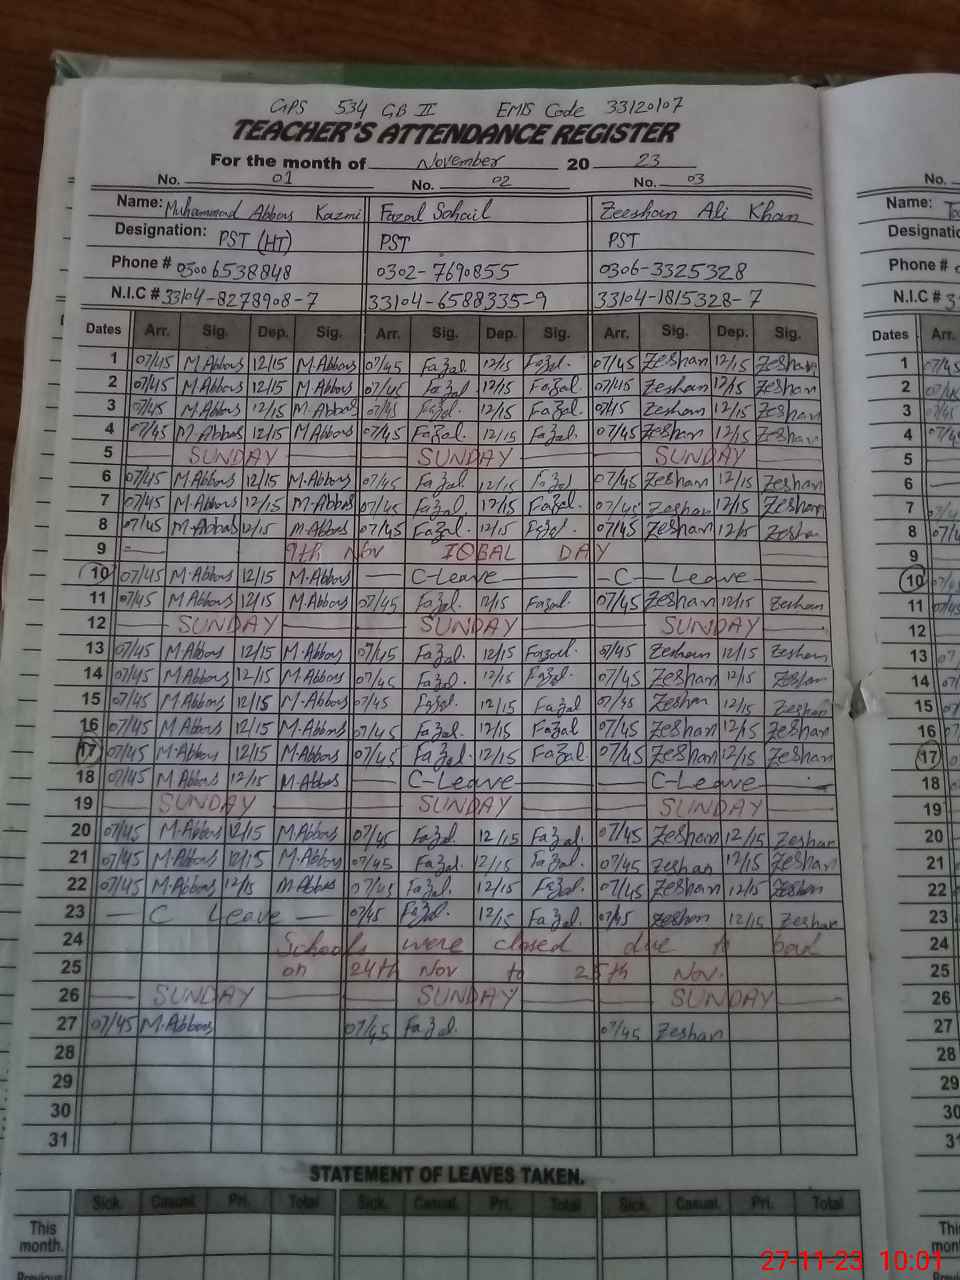 GPS 534 GB II EMIS Code 33120107
TEACHER'S ATTENDANCE REGISTER
For the month of November 20 23
No. 01 No. 02 No. 03 No.
Name: Muhammad Abbas Kazmi Fazal Sohail Zeeshan Ali Khan Name:
Designation: PST (HT) PST PST Designatio
Phone # 0300 6538848 0302-7690855 0306-3325328 Phone #
N.I.C # 33104-8278908-7 33104-6588335-9 33104-1815328-7 N.I.C # 3
Dates Arr. Sig. Dep. Sig. Arr. Sig. Dep. Sig. Arr. Sig. Dep. Sig. Dates Arr.
1 07/45 M.Abbas 12/15 M.Abbas 07/45 Fazal 12/15 Fazal. 07/45 Zeshan 12/15 Zeshan 1 07/45
2 07/45 M.Abbas 12/15 M.Abbas 07/45 Fazal. 12/15 Fazal. 07/45 Zeshan 12/15 Zeshan 2
3 07/45 M.Abbas 12/15 M.Abbas 07/45 Fazal. 12/15 Fazal. 07/45 Zeshan 12/15 Zeshan 3
4 07/45 M.Abbas 12/15 M.Abbas 07/45 Fazal. 12/15 Fazal. 07/45 Zeshan 12/15 Zeshan 4
5 SUNDAY SUNDAY SUNDAY 5
6 07/45 M.Abbas 12/15 M.Abbas 07/45 Fazal. 12/15 Fazal. 07/45 Zeshan 12/15 Zeshan 6
7 07/45 M.Abbas 12/15 M.Abbas 07/45 Fazal. 12/15 Fazal. 07/45 Zeshan 12/15 Zeshan 7
8 07/45 M.Abbas 12/15 M.Abbas 07/45 Fazal. 12/15 Fazal. 07/45 Zeshan 12/15 Zeshan 8
9 9th Nov IQBAL DAY 9
10 07/45 M.Abbas 12/15 M.Abbas C-Leave C- Leave 10
11 07/45 M.Abbas 12/15 M.Abbas 07/45 Fazal. 12/15 Fazal. 07/45 Zeshan 12/15 Zeshan 11
12 SUNDAY SUNDAY SUNDAY 12
13 07/45 M.Abbas 12/15 M.Abbas 07/45 Fazal. 12/15 Fazal. 07/45 Zeshan 12/15 Zeshan 13
14 07/45 M.Abbas 12/15 M.Abbas 07/45 Fazal. 12/15 Fazal. 07/45 Zeshan 12/15 Zeshan 14
15 07/45 M.Abbas 12/15 M.Abbas 07/45 Fazal. 12/15 Fazal 07/45 Zeshan 12/15 Zeshan 15
16 07/45 M.Abbas 12/15 M.Abbas 07/45 Fazal. 12/15 Fazal 07/45 Zeshan 12/15 Zeshan 16
17 07/45 M.Abbas 12/15 M.Abbas 07/45 Fazal. 12/15 Fazal. 07/45 Zeshan 12/15 Zeshan 17
18 07/45 M.Abbas 12/15 M.Abbas C-Leave C-Leave 18
19 SUNDAY SUNDAY SUNDAY 19
20 07/45 M.Abbas 12/15 M.Abbas 07/45 Fazal. 12/15 Fazal. 07/45 Zeshan 12/15 Zeshan 20
21 07/45 M.Abbas 12/15 M.Abbas 07/45 Fazal. 12/15 Fazal. 07/45 Zeshan 12/15 Zeshan 21
22 07/45 M.Abbas 12/15 M.Abbas 07/45 Fazal. 12/15 Fazal. 07/45 Zeshan 12/15 Zeshan 22
23 C Leave 07/45 Fazal. 12/15 Fazal. 07/45 Zeshan 12/15 Zeshan 23
24 Schools were closed due to bad 24
25 on 24th Nov to 25th Nov. 25
26 SUNDAY SUNDAY SUNDAY 26
27 07/45 M.Abbas 07/45 Fazal. 07/45 Zeshan 27
28 28
29 29
30 30
31 31
STATEMENT OF LEAVES TAKEN.
Sick. Casual. Pri. Total Sick. Casual. Pri. Total Sick. Casual. Pri. Total
This month. This mon
Previous
27-11-23 10:01